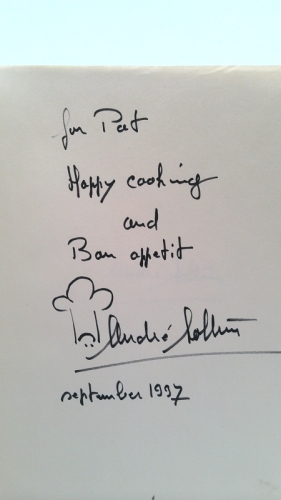 for Pat
Happy cooking
and
Bon appetit
André
september 1997